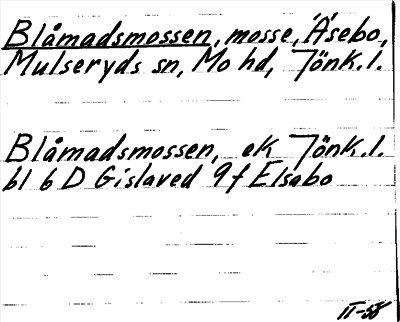 Blåmadsmossen, mosse, Åsebo,
Mulseryds sn, Mo hd, Jönk.l.
Blåmadsmossen, ek Jönk.l.
bl 6 D Gislaved 9f Elsabo
II-58